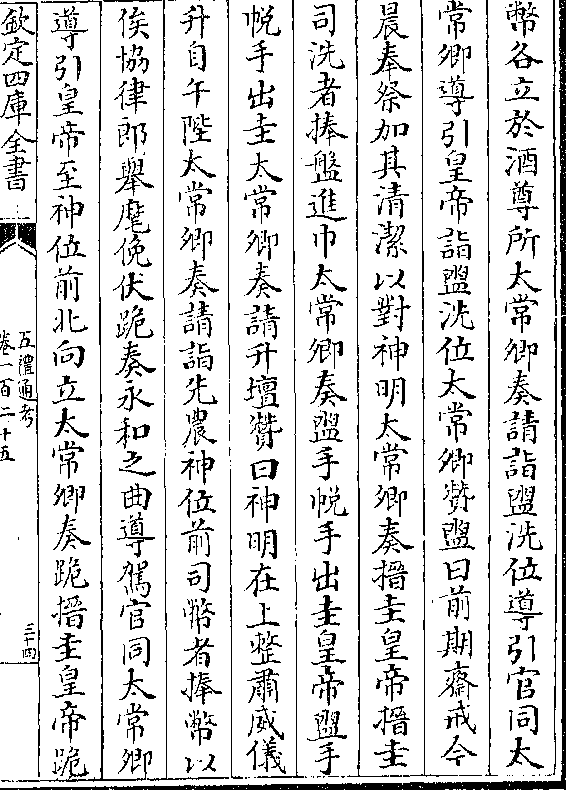 幣各立於酒尊所太常卿奏請詣盥洗位導引官同太
常卿導引皇帝詣盥洗位太常卿贊盥曰前期齋戒今
晨奉祭加其清潔以對神明太常卿奏搢圭皇帝搢圭
司洗者捧盤進巾太常卿奏盥手帨手出圭皇帝盥手
帨手出圭太常卿奏請升壇贊曰神明在上整肅威儀
升自午陛太常卿奏請詣先農神位前司幣者捧幣以
俟協律郎舉麾俛伏跪奏永和之曲導駕官同太常卿
導引皇帝至神位前北向立太常卿奏跪搢圭皇帝跪
欽定四庫全書
五禮通考
卷一百二十五
三十四